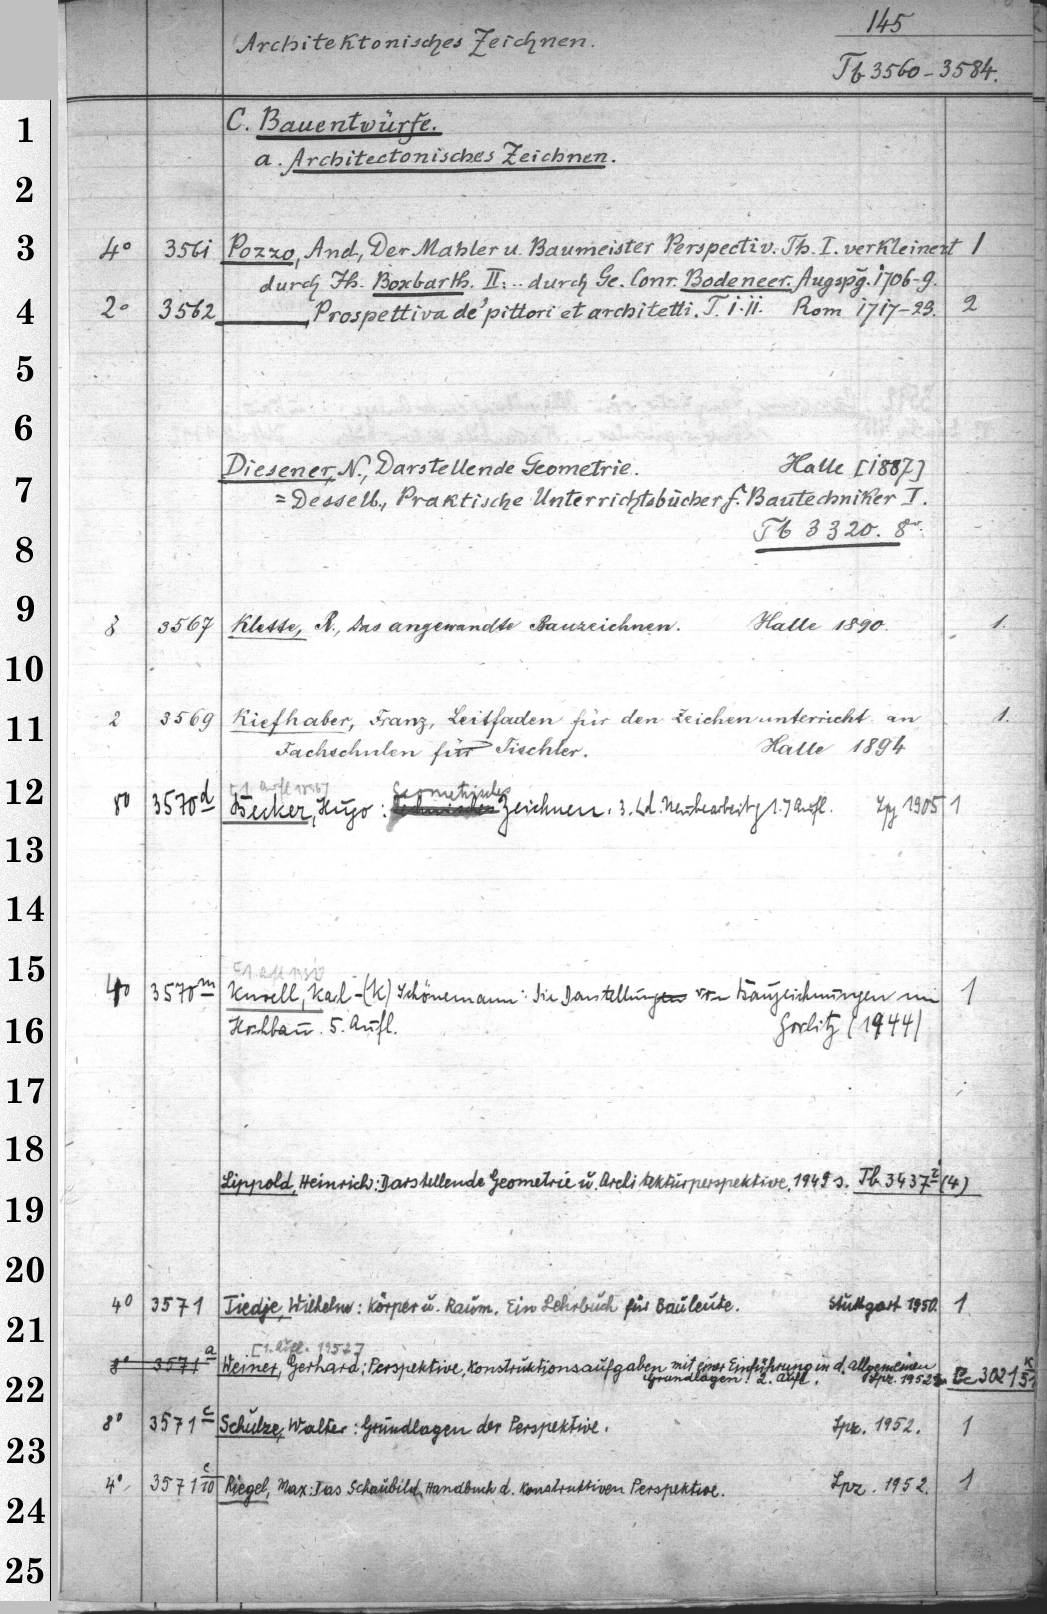 145
Architektonisches Zeichnen.
Tb 3560-3584.
1 C. Bauentwürfe.
a. Architectonisches Zeichnen.
2
3 4° 3561 Pozzo, And., Der Mahler u. Baumeister Perspectiv. Th. I. verkleinert 1
durch Jh. Boxbarth. II: .. durch Ge. Conr. Bodeneer. Augspg. 1706-9.
4 2° 3562 ———, Prospettiva de' pittori et architetti. T. I.II. Rom 1717-23. 2
5
6
Diesener, N., Darstellende Geometrie. Halle [1887]
7 = Desselb., Praktische Unterrichtsbücher f. Bautechniker I.
Tb 3320. 8°.
8
9 8 3567 Klette, R., Das angewandte Bauzeichnen. Halle 1890. 1.
10
11 2 3569 Kiefhaber, Franz, Leitfaden für den Zeichenunterricht an 1.
Fachschulen für Tischler. Halle 1894
12 [1. Aufl. Geometrisches
8° 3570d Becker, Hugo: Zeichnen. 3. Neubearbeitg 1.7 Aufl. Lpz 1905 1
13
14
15 [1. Aufl.
4° 3570m Knoell, Karl - (K) Schönemann: Die Darstellung von Bauzeichnungen im 1
16 Hochbau. 5. Aufl. Görlitz (1944)
17
18
Lippold, Heinrich: Darstellende Geometrie u. Architekturperspektive. 1949 s. Tb 3437 (4)
19
20
4° 3571 Tiedje, Wilhelm: Körper u. Raum. Ein Lehrbuch für Bauleute. Stuttgart 1950. 1
21
[1. Aufl. 1952]
8° 3571a Weiner, Gerhard: Perspektive. Konstruktionsaufgaben mit einer Einführung in d. allgemeinen
22 Grundlagen. 2. Aufl. Lpz. 1952 3021
8° 3571c Schulze, Walter: Grundlagen der Perspektive. Lpz. 1952. 1
23
4° 3571 c/10 Riegel, Max: Das Schaubild, Handbuch d. konstruktiven Perspektive. Lpz. 1952. 1
24
25